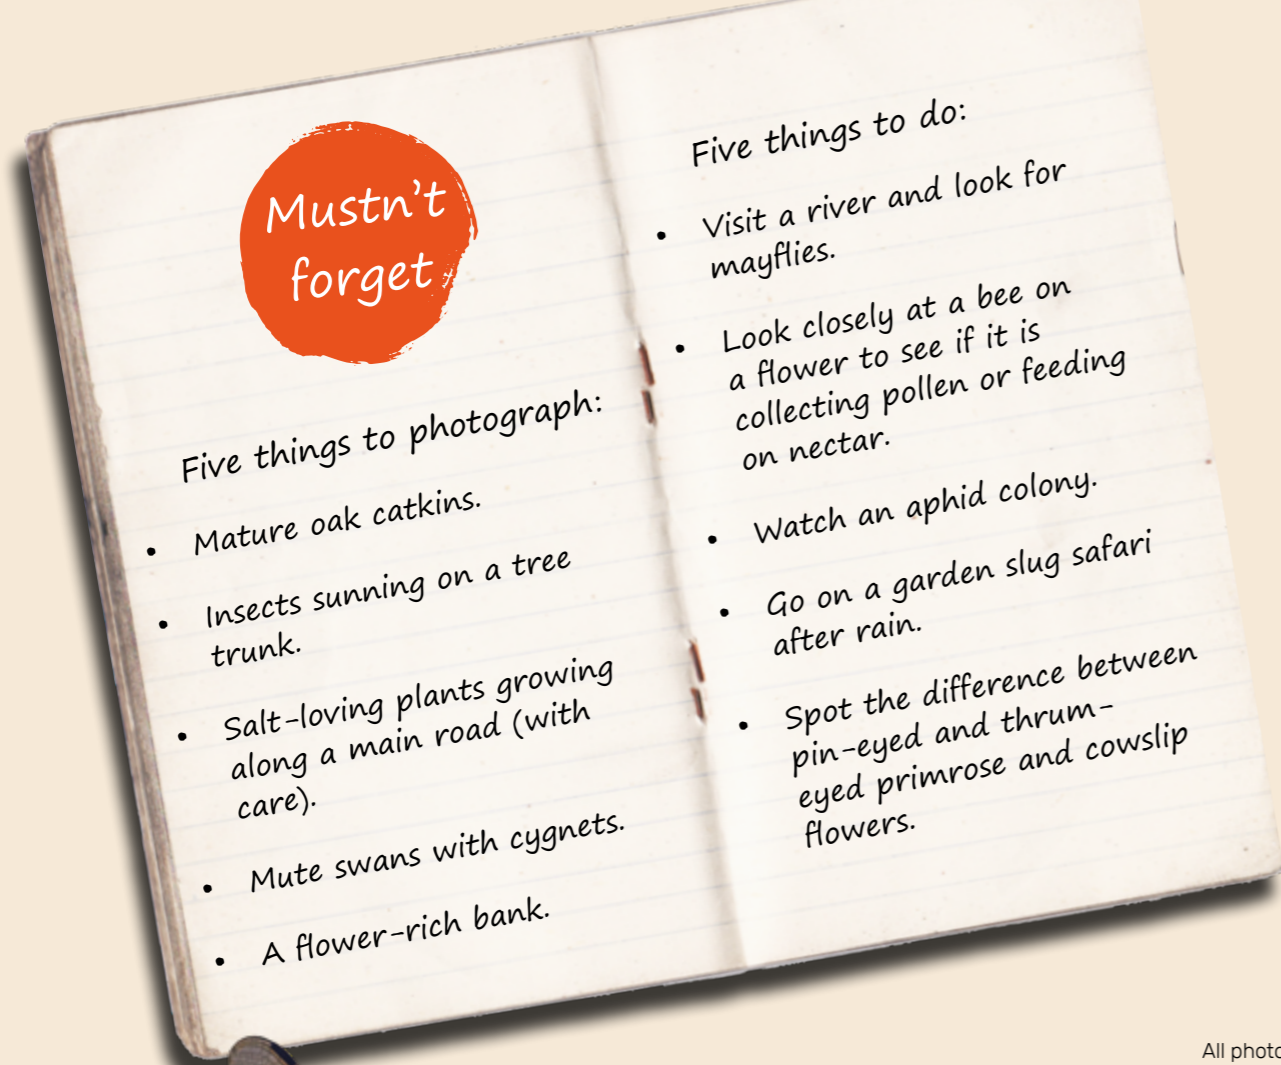 Mustn't
forget
Five things to photograph:
• Mature oak catkins.
• Insects sunning on a tree
trunk.
• Salt-loving plants growing
along a main road (with
care).
• Mute swans with cygnets.
• A flower-rich bank.
Five things to do:
• Visit a river and look for
mayflies.
• Look closely at a bee on
a flower to see if it is
collecting pollen or feeding
on nectar.
• Watch an aphid colony.
• Go on a garden slug safari
after rain.
• Spot the difference between
pin-eyed and thrum-
eyed primrose and cowslip
flowers.
All